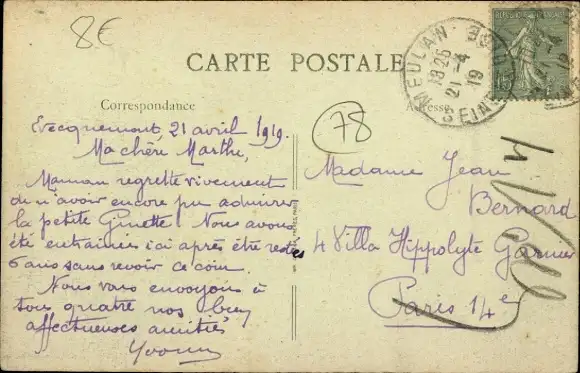 8€
CARTE POSTALE
Correspondance
Adresse
MEULAN
18 25
21 - 4
19
SEINE
78
Evecquemont, 21 avril 1919.
Ma chère Marthe,
Maman regrette vivement
de n'avoir encore pu admirer
la petite Ginette. Nous avons
été entrainées ici après être restées
6 ans sans revoir ce coin.
Nous vous envoyons à
tous quatre nos bien
affectueuses amitiés
Yvonne
Madame Jean
Bernard
4 Villa Hippolyte Garnier
Paris 14e